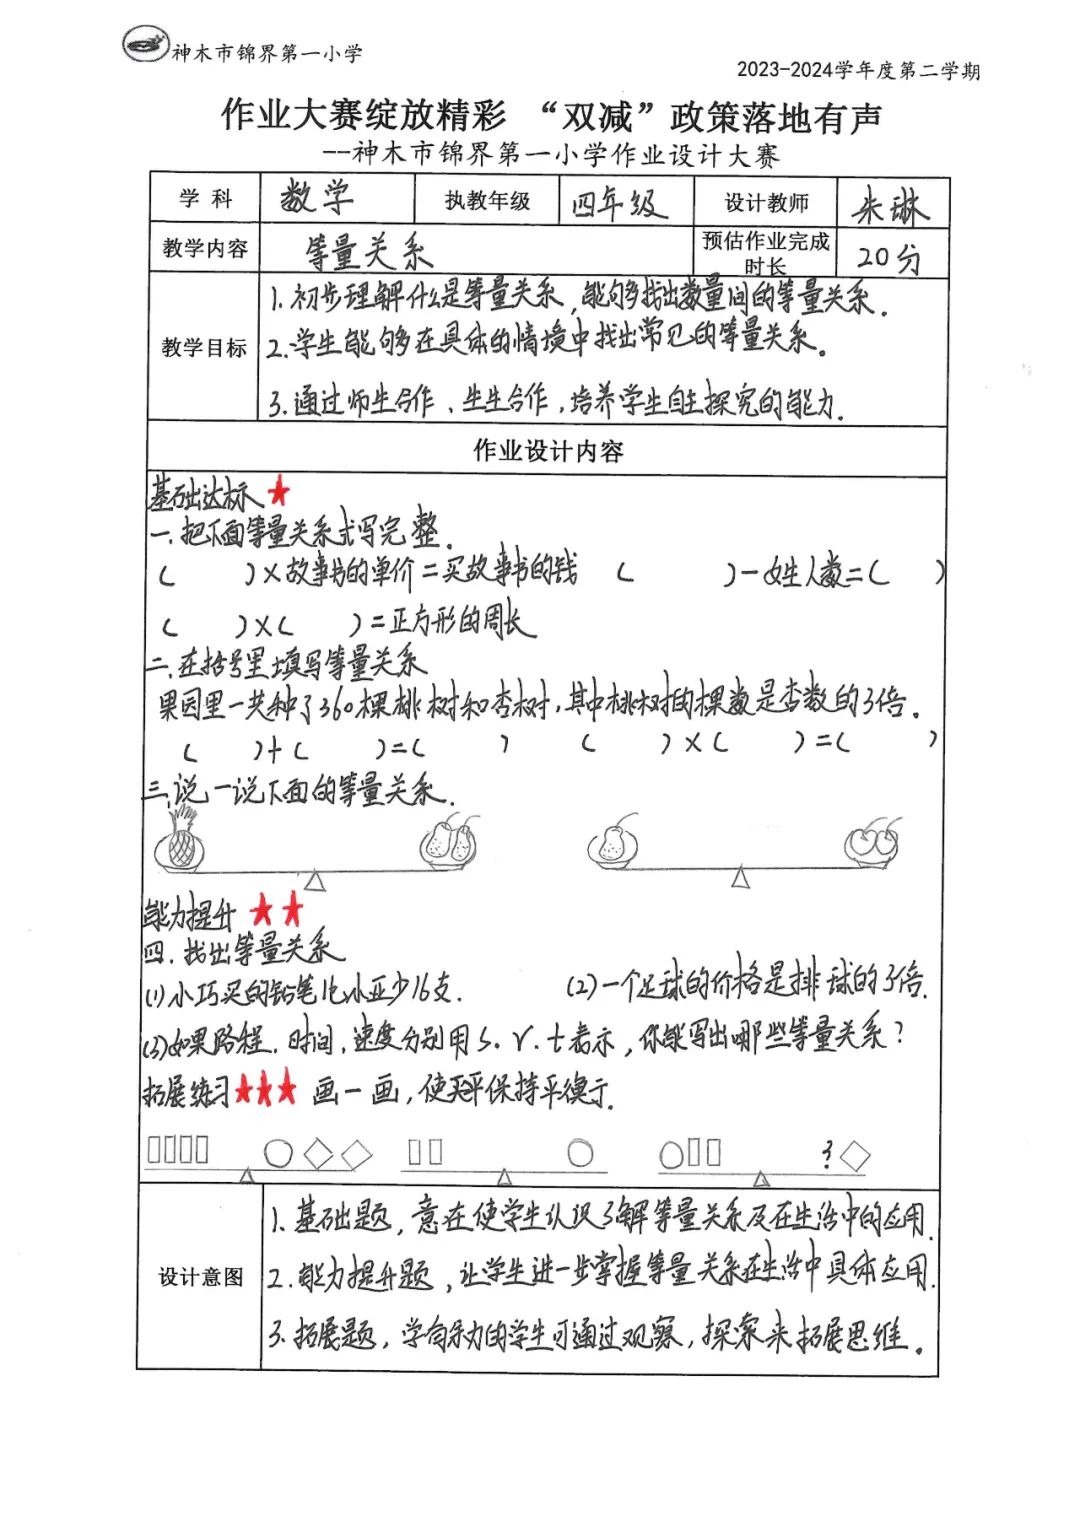 神木市锦界第一小学
2023-2024学年度第二学期
作业大赛绽放精彩 “双减”政策落地有声
--神木市锦界第一小学作业设计大赛
学科 数学 执教年级 四年级 设计教师 朱琳
教学内容 等量关系 预估作业完成时长 20分
教学目标
1.初步理解什么是等量关系,能够找出数量间的等量关系.
2.学生能够在具体的情境中找出常见的等量关系。
3.通过师生合作、生生合作,培养学生自主探究的能力.
作业设计内容
基础达标★
一.把下面等量关系式写完整.
( )×故事书的单价=买故事书的钱 ( )-女生人数=( )
( )×( )=正方形的周长
二.在括号里填写等量关系
果园里一共种了360棵桃树和杏树,其中桃树的棵数是杏数的3倍.
( )+( )=( ) ( )×( )=( )
三.说一说下面的等量关系.
能力提升★★
四.找出等量关系
(1)小巧买的铅笔比小亚少16支. (2)一个足球的价格是排球的3倍.
(3)如果路程.时间.速度分别用S.V.t表示,你能写出哪些等量关系?
拓展练习★★★ 画一画,使天平保持平衡.
?
设计意图
1.基础题,意在使学生认识了解等量关系及在生活中的应用.
2.能力提升题,让学生进一步掌握等量关系在生活中具体应用.
3.拓展题,学有余力的学生可通过观察,探索来拓展思维.